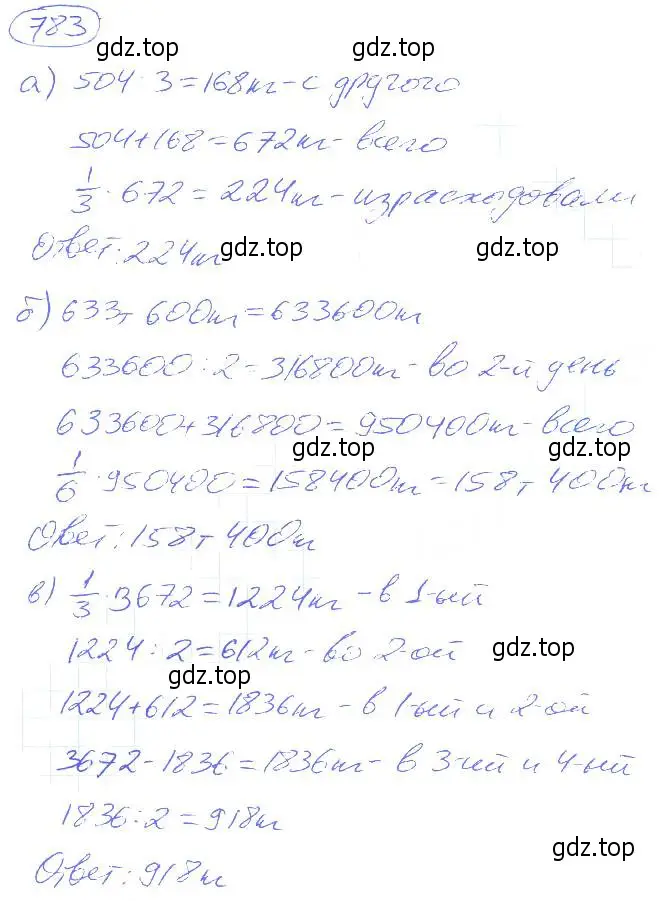 783
gdz.top
gdz.top
а) 504 : 3 = 168кг - с другого
504 + 168 = 672кг - всего
1/3 · 672 = 224кг - израсходовали
Ответ: 224кг
gdz.top
б) 633т 600кг = 633600кг
633600 : 2 = 316800кг - во 2-й день
633600 + 316800 = 950400кг - всего
gdz.top
gdz.top
1/6 · 950400 = 158400кг = 158т 400кг
Ответ: 158т 400кг
gdz.top
в) 1/3 · 3672 = 1224кг - в 1-ый
1224 : 2 = 612кг - во 2-ой
gdz.top
gdz.top
1224 + 612 = 1836кг - в 1-ый и 2-ой
3672 - 1836 = 1836кг - в 3-ий и 4-ый
1836 : 2 = 918кг
gdz.top
Ответ: 918кг